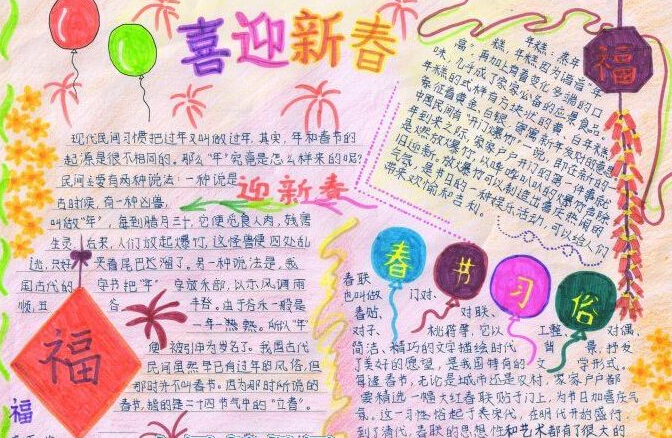 喜迎新春
现代民间习惯把过年又叫做过年,其实,年和春节的
起源是很不相同的。那么"年"究竟是怎么样来的呢?
民间主要有两种说法:一种说是
古时候,有一种凶兽,
叫做"年",每到腊月三十,它便觅食人肉,残害
生灵。后来,人们放起爆竹,这怪兽便四处乱
逃,只好 夹着尾巴逃溜了。另一种说法是,我
国古代的 字书把"年"字放禾部,以示风调雨
顺,五 谷 丰登。由于谷禾一般是
一年一熟。所以"年
便 被引申为岁名了。我国古代
民间虽然早已有过年的风俗,但
那时并不叫春节。因为那时所说的
春节,指的是二十四节气中的"立春"。
迎新春
年糕:蒸年
糕,年糕因为谐音"年
高",再加上有着变化多端的口
味,几乎成了家家必备的应景食品。
年糕的式样有方块状的黄、白年糕,
象征着黄金、白银,寄寓新年发财的意思
中国民间有"开门爆竹"一说。即在新的一
年到来之际,家家户户开门的第一件事就
是燃放爆竹,以哔哔叭叭的爆竹声除
旧迎新。放爆竹可以制造出喜庆热闹的
气氛,是节日的一种娱乐活动,可以给人们
带来欢愉和吉利。
福
春节习俗
春联
也叫做 门对、
春贴、 对联、
对子、 桃符等,它以 工整、 对偶、
简洁、精巧的文字描绘时代 背 景,抒发
了美好的愿望,是我国特有的 文 学形式。
每逢春节,无论是城市还是农村,家家户户都
要精选一幅大红春联贴于门上,为节日加喜庆气
氛。这一习俗起于宋代,在明代开始盛行,
到了清代,春联的思想性和艺术都有了很大的
福
福